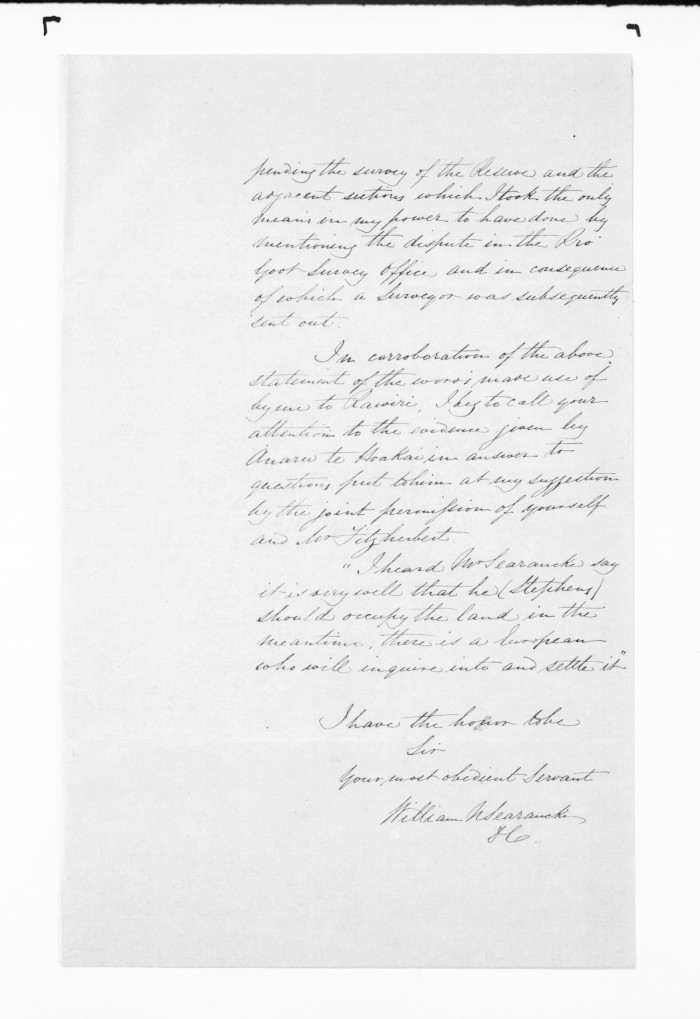 pending the survey of the Reserve and the
adjacent sections which I took the only
means in my power to have done by
mentioning the dispute in the Pro
Govt Survey Office and in consequence
of which a Surveyor was subsequently
sent out.
In corroboration of the above
statement of the words made use of
by me to Rawiri, I beg to call your
attention to the evidence given by
Anaru te Hoakai, in answer to
questions put to him at my suggestion
by the joint permission of yourself
and Mr Fitzherbert
"I heard Mr Searancke say
it is very well that he (Stephens)
should occupy the land in the
meantime, there is a European
who will inquire into and settle it"
I have the honor to be
Sir
Your most obedient Servant
William N Searancke